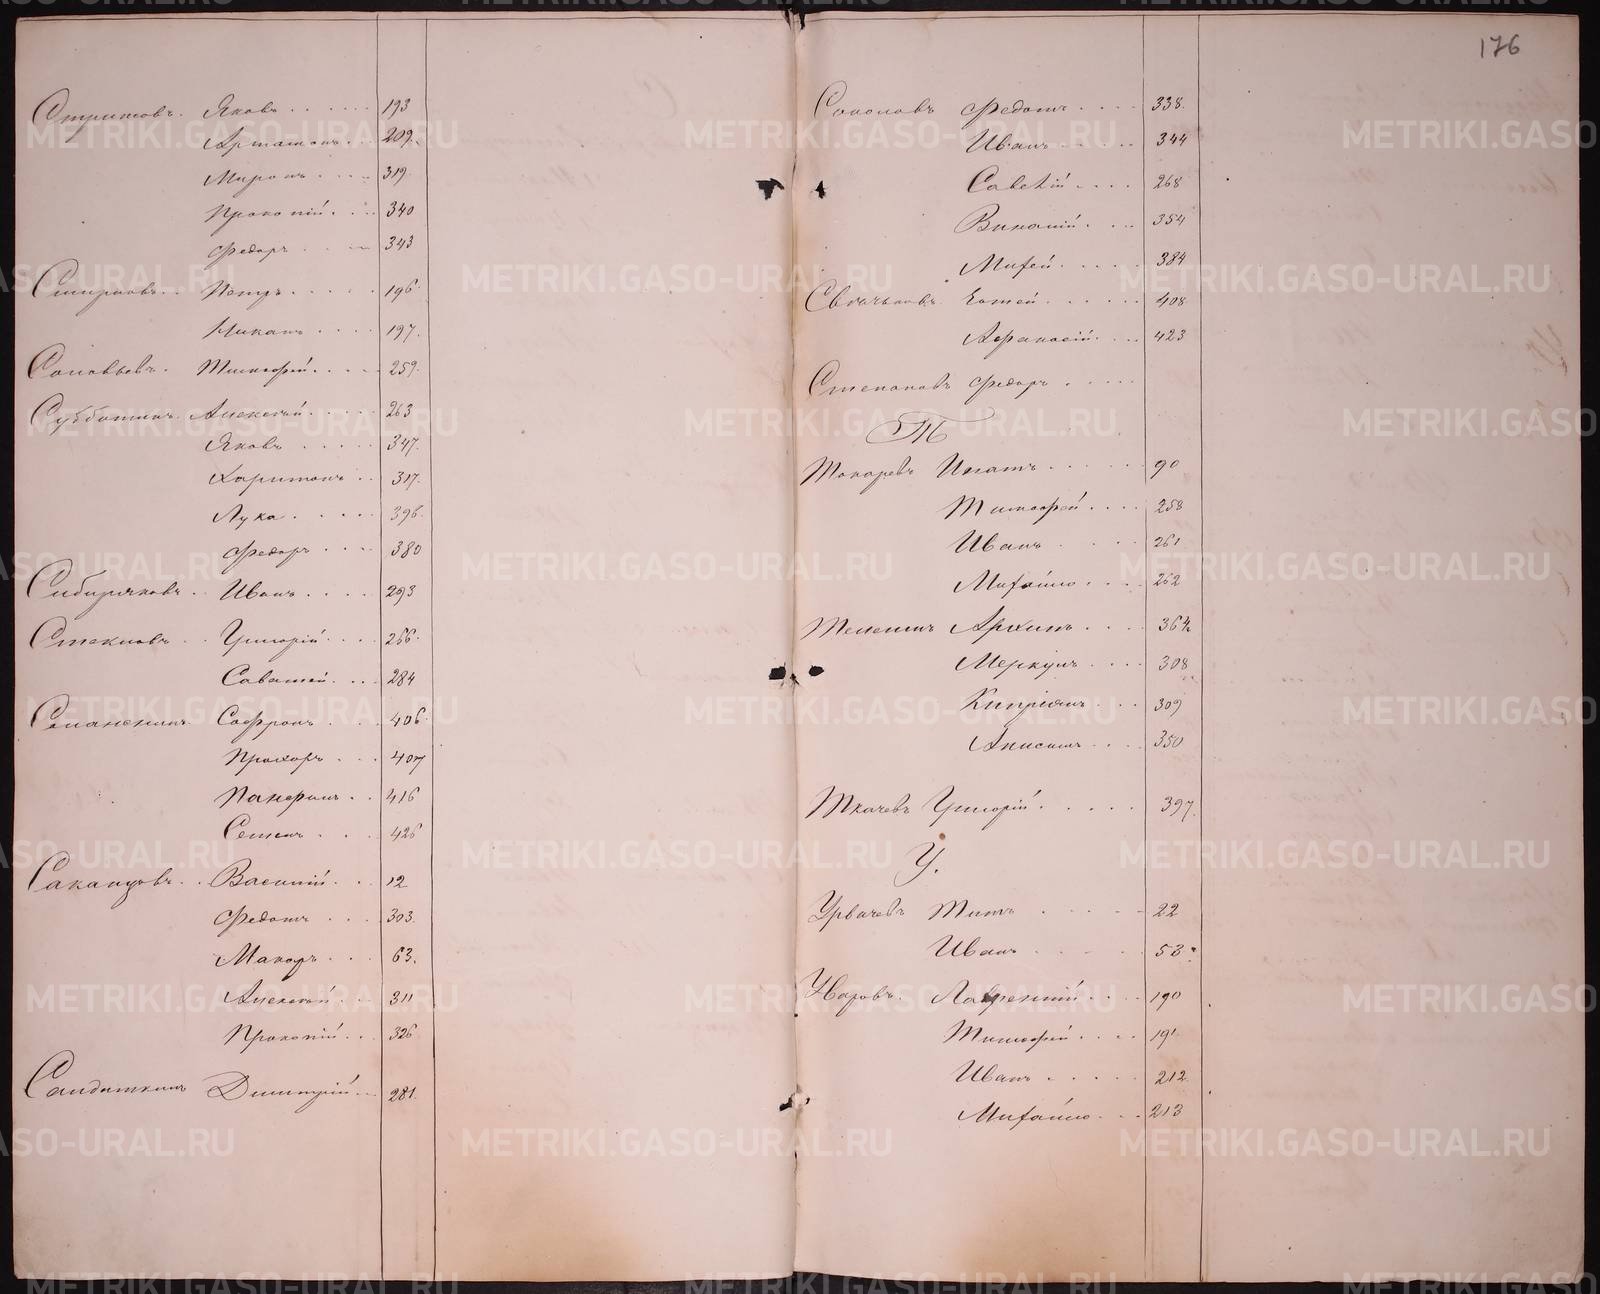 176
Стритовъ. Яковъ 193
Артамонъ 209.
Миронъ 319.
Прокопій 340
Федоръ 343
Смирновъ Петръ 196.
Никонъ 197.
Соловьевъ. Тимофей 259.
Субботинъ Алексѣй 263
Яковъ 347.
Харитонъ 317.
Лука 396.
Федоръ 380
Сибиряковъ Иванъ 293
Стекловъ Григорій 266.
Саватей 284
Софронъ 406.
Прохоръ 407
Панфилъ 416
Семенъ 426
Василій 12
Федотъ 303.
Макаръ 63.
Алексѣй 311
Прокопій 326
Димитрій 281.
Соколовъ Федотъ 338.
Иванъ 344
268
354
Михей 384
408
Афанасій 423
Степановъ Федоръ
Т
Токаревъ Игнатъ 90
Тимофей 258
Иванъ 261
Михайло 262
Теленинъ Архипъ 364.
Меркулъ 308
Кипріянъ 309
Анисимъ 350
Ткачевъ Григорій 397.
У.
Урвачевъ Титъ 22
Иванъ 53.
Уваровъ. Лаврентій 190
Тимофей 191
Иванъ 212
Михайло 213
METRIKI.GASO-URAL.RU